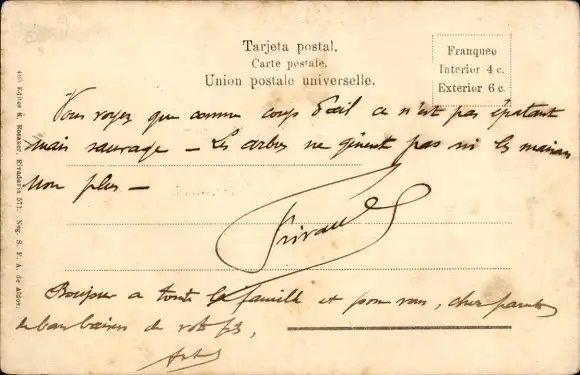 Tarjeta postal.
Carte postale.
Union postale universelle.
Franqueo
Interior 4 c.
Exterior 6 c.
Editor R. Rosauer, Rivadavia 571. Neg. S. F. A. de Afdos.
Vous voyez que comme coup d'œil ce n'est pas épatant
mais sauvage – Les arbres ne gênent pas ni les maisons
non plus –
Bonjour a toute la famille et pour vous, chers parents
de bons baisers de votre fils,